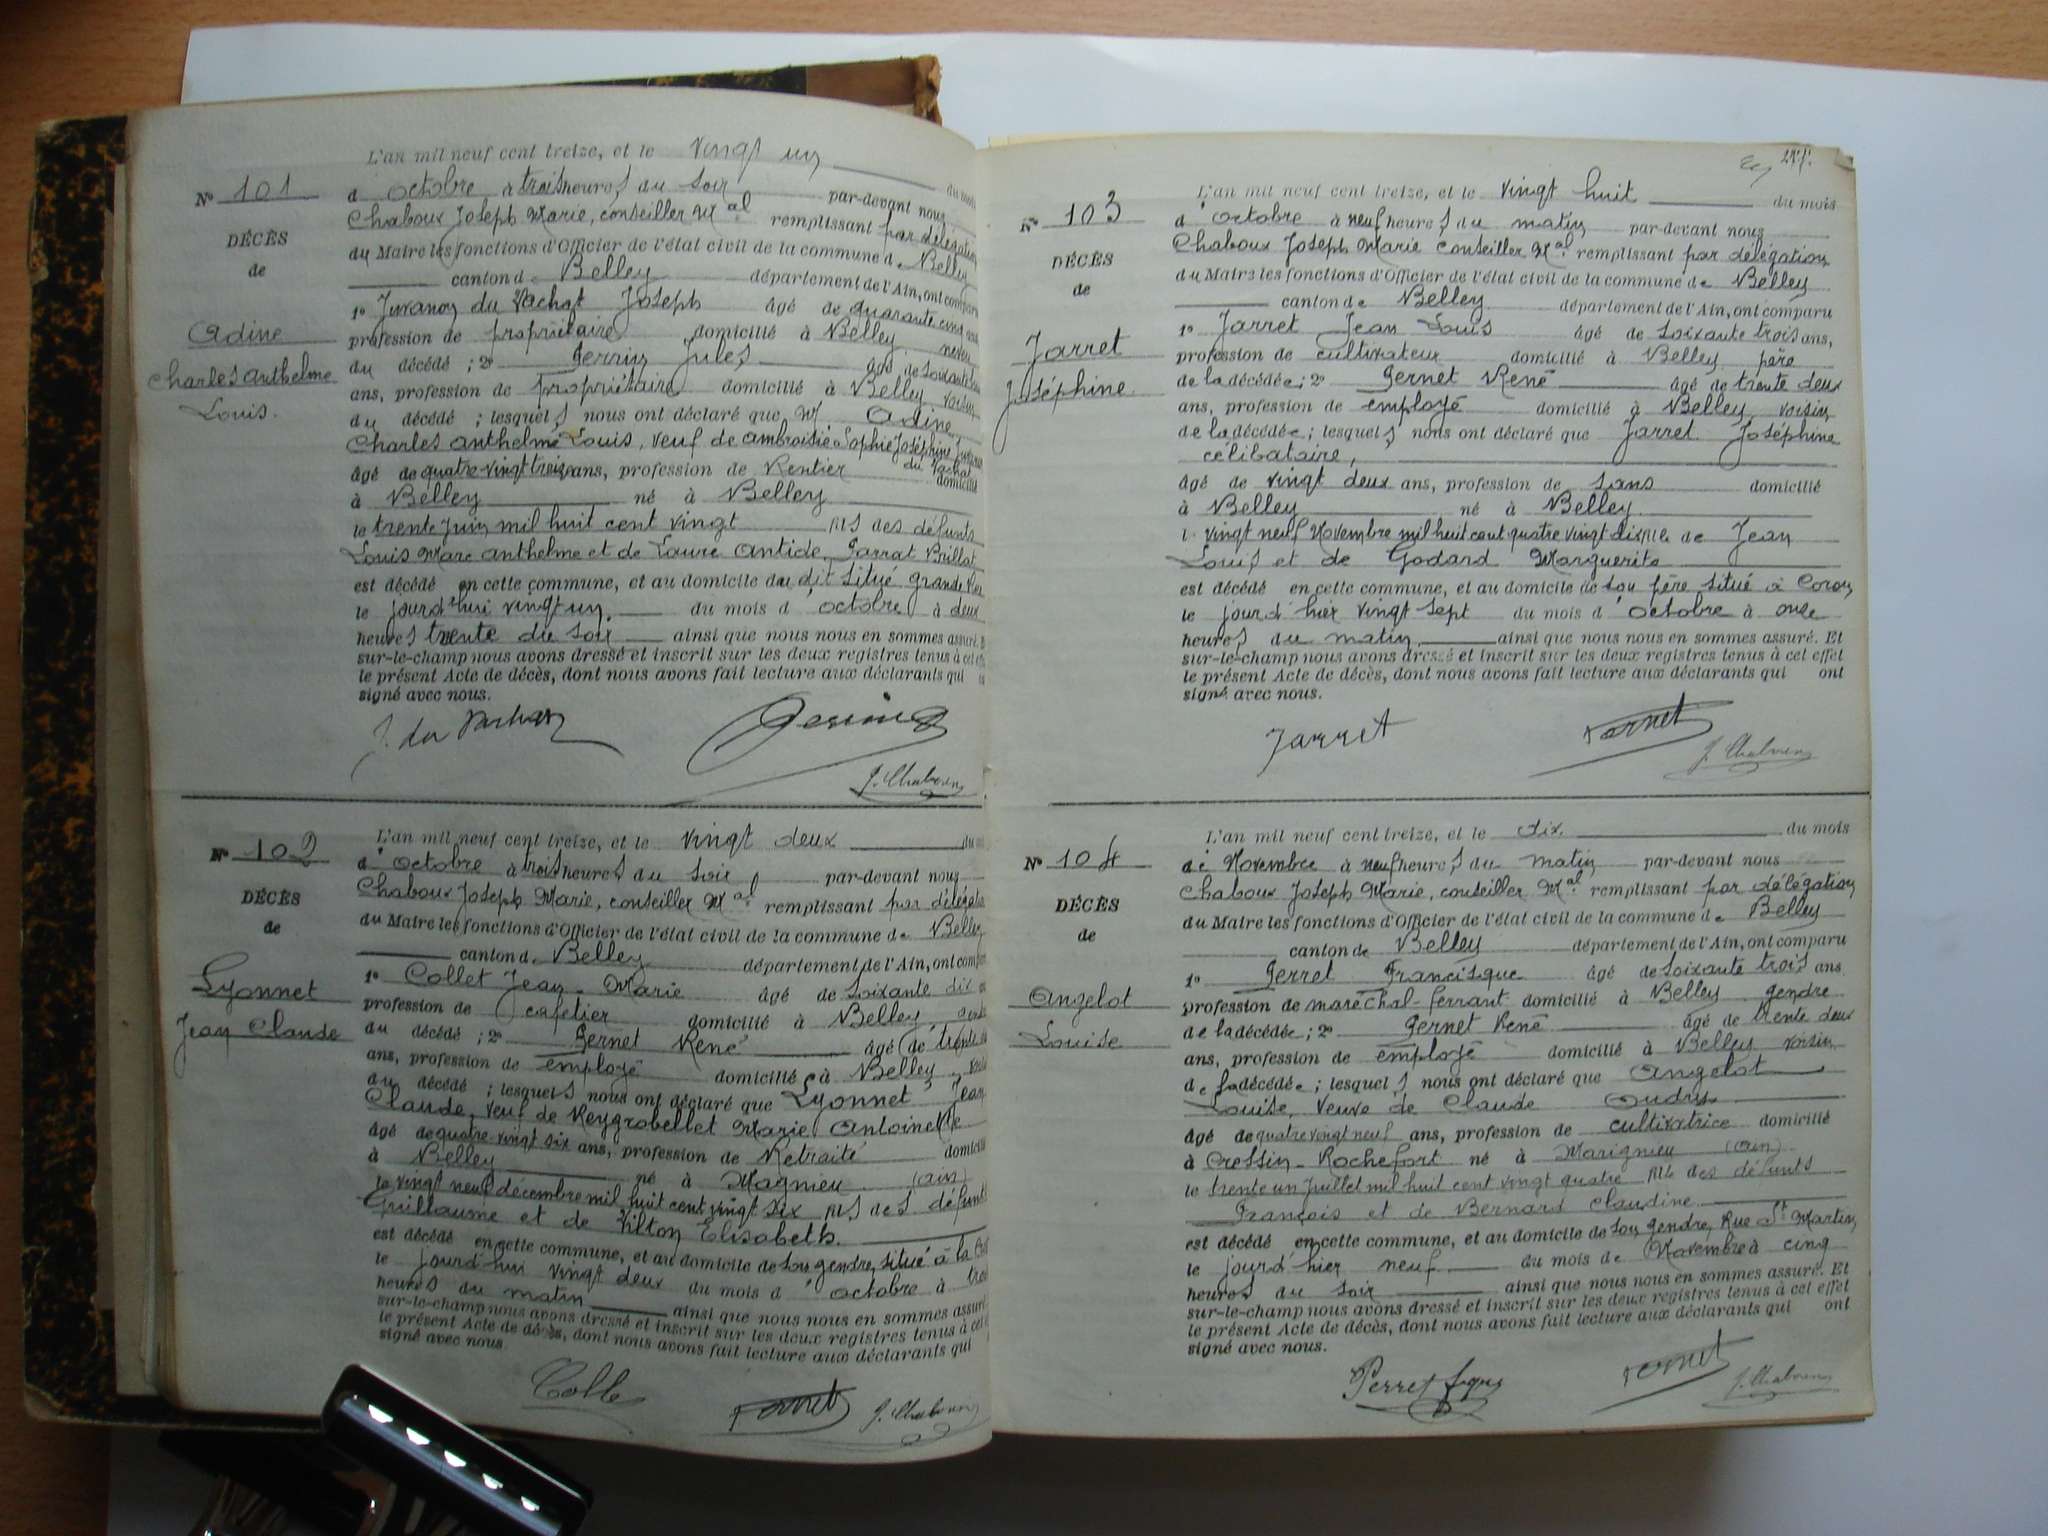 L'an mil neuf cent treize, et le vingt un du mois
N° 101
d'octobre à trois heures du soir par-devant nous
Chaboux Joseph Marie, conseiller Mal remplissant par délégation
DÉCÈS
du Maire les fonctions d'Officier de l'état civil de la commune de Belley
de
canton de Belley département de l'Ain, ont comparu
1° Juvanon du Vachat Joseph âgé de quarante cinq ans
Adine
profession de propriétaire domicilié à Belley neveu
du décédé ; 2° Perrin Jules âgé de soixante
Charles Anthelme
ans, profession de propriétaire domicilié à Belley voisin
Louis.
du décédé ; lesquels nous ont déclaré que M. Adine
Charles Anthelme Louis, veuf de Ambroisie Sophie Joséphine Juvanon
du Vachat
âgé de quatre-vingt treize ans, profession de Rentier domicilié
à Belley né à Belley
le trente Juin mil huit cent vingt fils des défunts
Louis Marc Anthelme et de Laure Antide Parrat Brillat
est décédé en cette commune, et au domicile du dit situé grande Rue
le jourd'hui vingt un du mois d'octobre à deux
heures trente du soir ainsi que nous nous en sommes assuré.
sur-le-champ nous avons dressé et inscrit sur les deux registres tenus à cet effet
le présent Acte de décès, dont nous avons fait lecture aux déclarants qui
signé avec nous.
J. du Vachat
Perrin
J. Chaboux
L'an mil neuf cent treize, et le vingt deux du
N° 102
d'octobre à trois heures du soir par-devant nous
Chaboux Joseph Marie, conseiller Mal remplissant par délégation
DÉCÈS
du Maire les fonctions d'Officier de l'état civil de la commune de Belley
de
canton de Belley département de l'Ain, ont comparu
1° Collet Jean-Marie âgé de soixante dix
Lyonnet
profession de cafetier domicilié à Belley gendre
Jean Claude
du décédé ; 2° Pernet René âgé de trente
ans, profession de employé domicilié à Belley voisin
du décédé ; lesquels nous ont déclaré que Lyonnet Jean
Claude, veuf de Reygrobellet Marie Antoinette
âgé de quatre vingt six ans, profession de Retraité domicilié
à Belley né à Magnieu (ain)
le vingt neuf décembre mil huit cent vingt six fils des défunts
Guillaume et de Vilton Elisabeth.
est décédé en cette commune, et au domicile de son gendre, situé à la
le jourd'hui vingt deux du mois d'octobre à trois
heures du matin ainsi que nous nous en sommes assuré.
sur-le-champ nous avons dressé et inscrit sur les deux registres tenus à cet
le présent Acte de décès, dont nous avons fait lecture aux déclarants qui
signé avec nous.
Collet
Pernet
J. Chaboux
L'an mil neuf cent treize, et le vingt huit du mois
N° 103
d'octobre à neuf heures du matin par-devant nous
Chaboux Joseph Marie conseiller Mal remplissant par délégation
DÉCÈS
du Maire les fonctions d'Officier de l'état civil de la commune de Belley
de
canton de Belley département de l'Ain, ont comparu
1° Jarret Jean Louis âgé de soixante trois ans,
Jarret
profession de cultivateur domicilié à Belley père
Joséphine
de la décédée ; 2° Pernet René âgé de trente deux
ans, profession de employé domicilié à Belley voisin
de la décédée ; lesquels nous ont déclaré que Jarret Joséphine
célibataire,
âgé de vingt deux ans, profession de sans domicilié
à Belley né à Belley
l. vingt neuf Novembre mil huit cent quatre vingt dix fille de Jean
Louis et de Godard Marguerite
est décédé en cette commune, et au domicile de son père situé à Coron
le jourd'hier vingt sept du mois d'octobre à onze
heures du matin ainsi que nous nous en sommes assuré. Et
sur-le-champ nous avons dressé et inscrit sur les deux registres tenus à cet effet
le présent Acte de décès, dont nous avons fait lecture aux déclarants qui ont
signé avec nous.
Jarret
Pernet
J. Chaboux
L'an mil neuf cent treize, et le dix du mois
N° 104
de Novembre à neuf heures du matin par-devant nous
Chaboux Joseph Marie, conseiller Mal remplissant par délégation
DÉCÈS
du Maire les fonctions d'Officier de l'état civil de la commune de Belley
de
canton de Belley département de l'Ain, ont comparu
1° Perret Francisque âgé de soixante trois ans
Angelot
profession de maréchal-ferrant domicilié à Belley gendre
Louise
de la décédée ; 2° Pernet René âgé de trente deux
ans, profession de employé domicilié à Belley voisin
de la décédée ; lesquels nous ont déclaré que Angelot
Louise, veuve de Claude Oudry
âgé de quatre vingt neuf ans, profession de cultivatrice domicilié
à Cressin-Rochefort né à Marignieu (ain)
le trente un Juillet mil huit cent vingt quatre fille des défunts
François et de Bernard Claudine
est décédé en cette commune, et au domicile de son gendre, Rue St Martin,
le jourd'hier neuf du mois de Novembre à cinq
heures du soir ainsi que nous nous en sommes assuré. Et
sur-le-champ nous avons dressé et inscrit sur les deux registres tenus à cet effet
le présent Acte de décès, dont nous avons fait lecture aux déclarants qui ont
signé avec nous.
Perret
Pernet
J. Chaboux